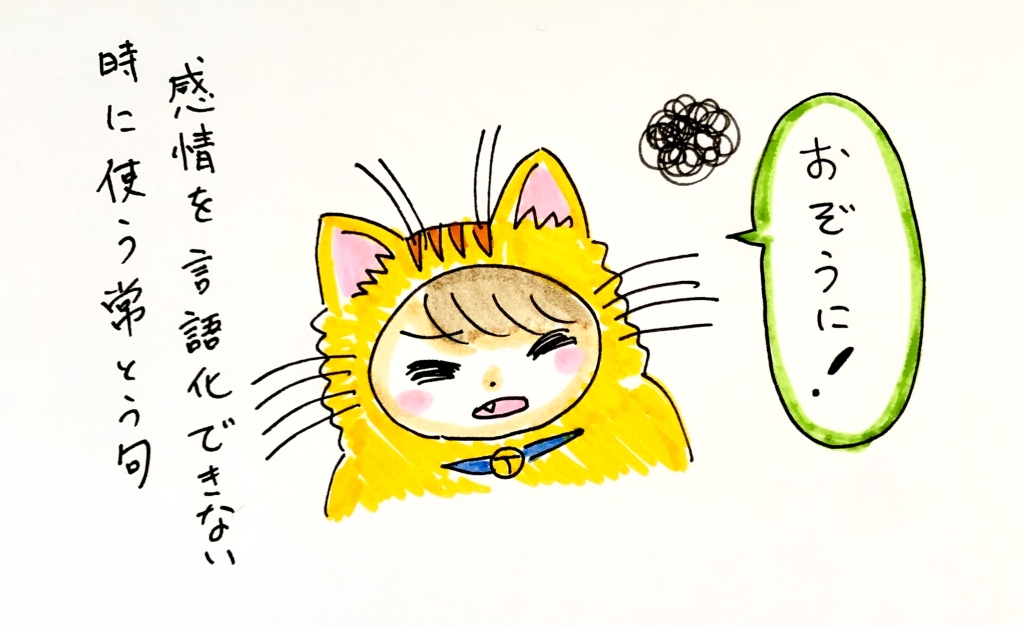 おぞうに!
感情を言語化できない
時に使う常とう句